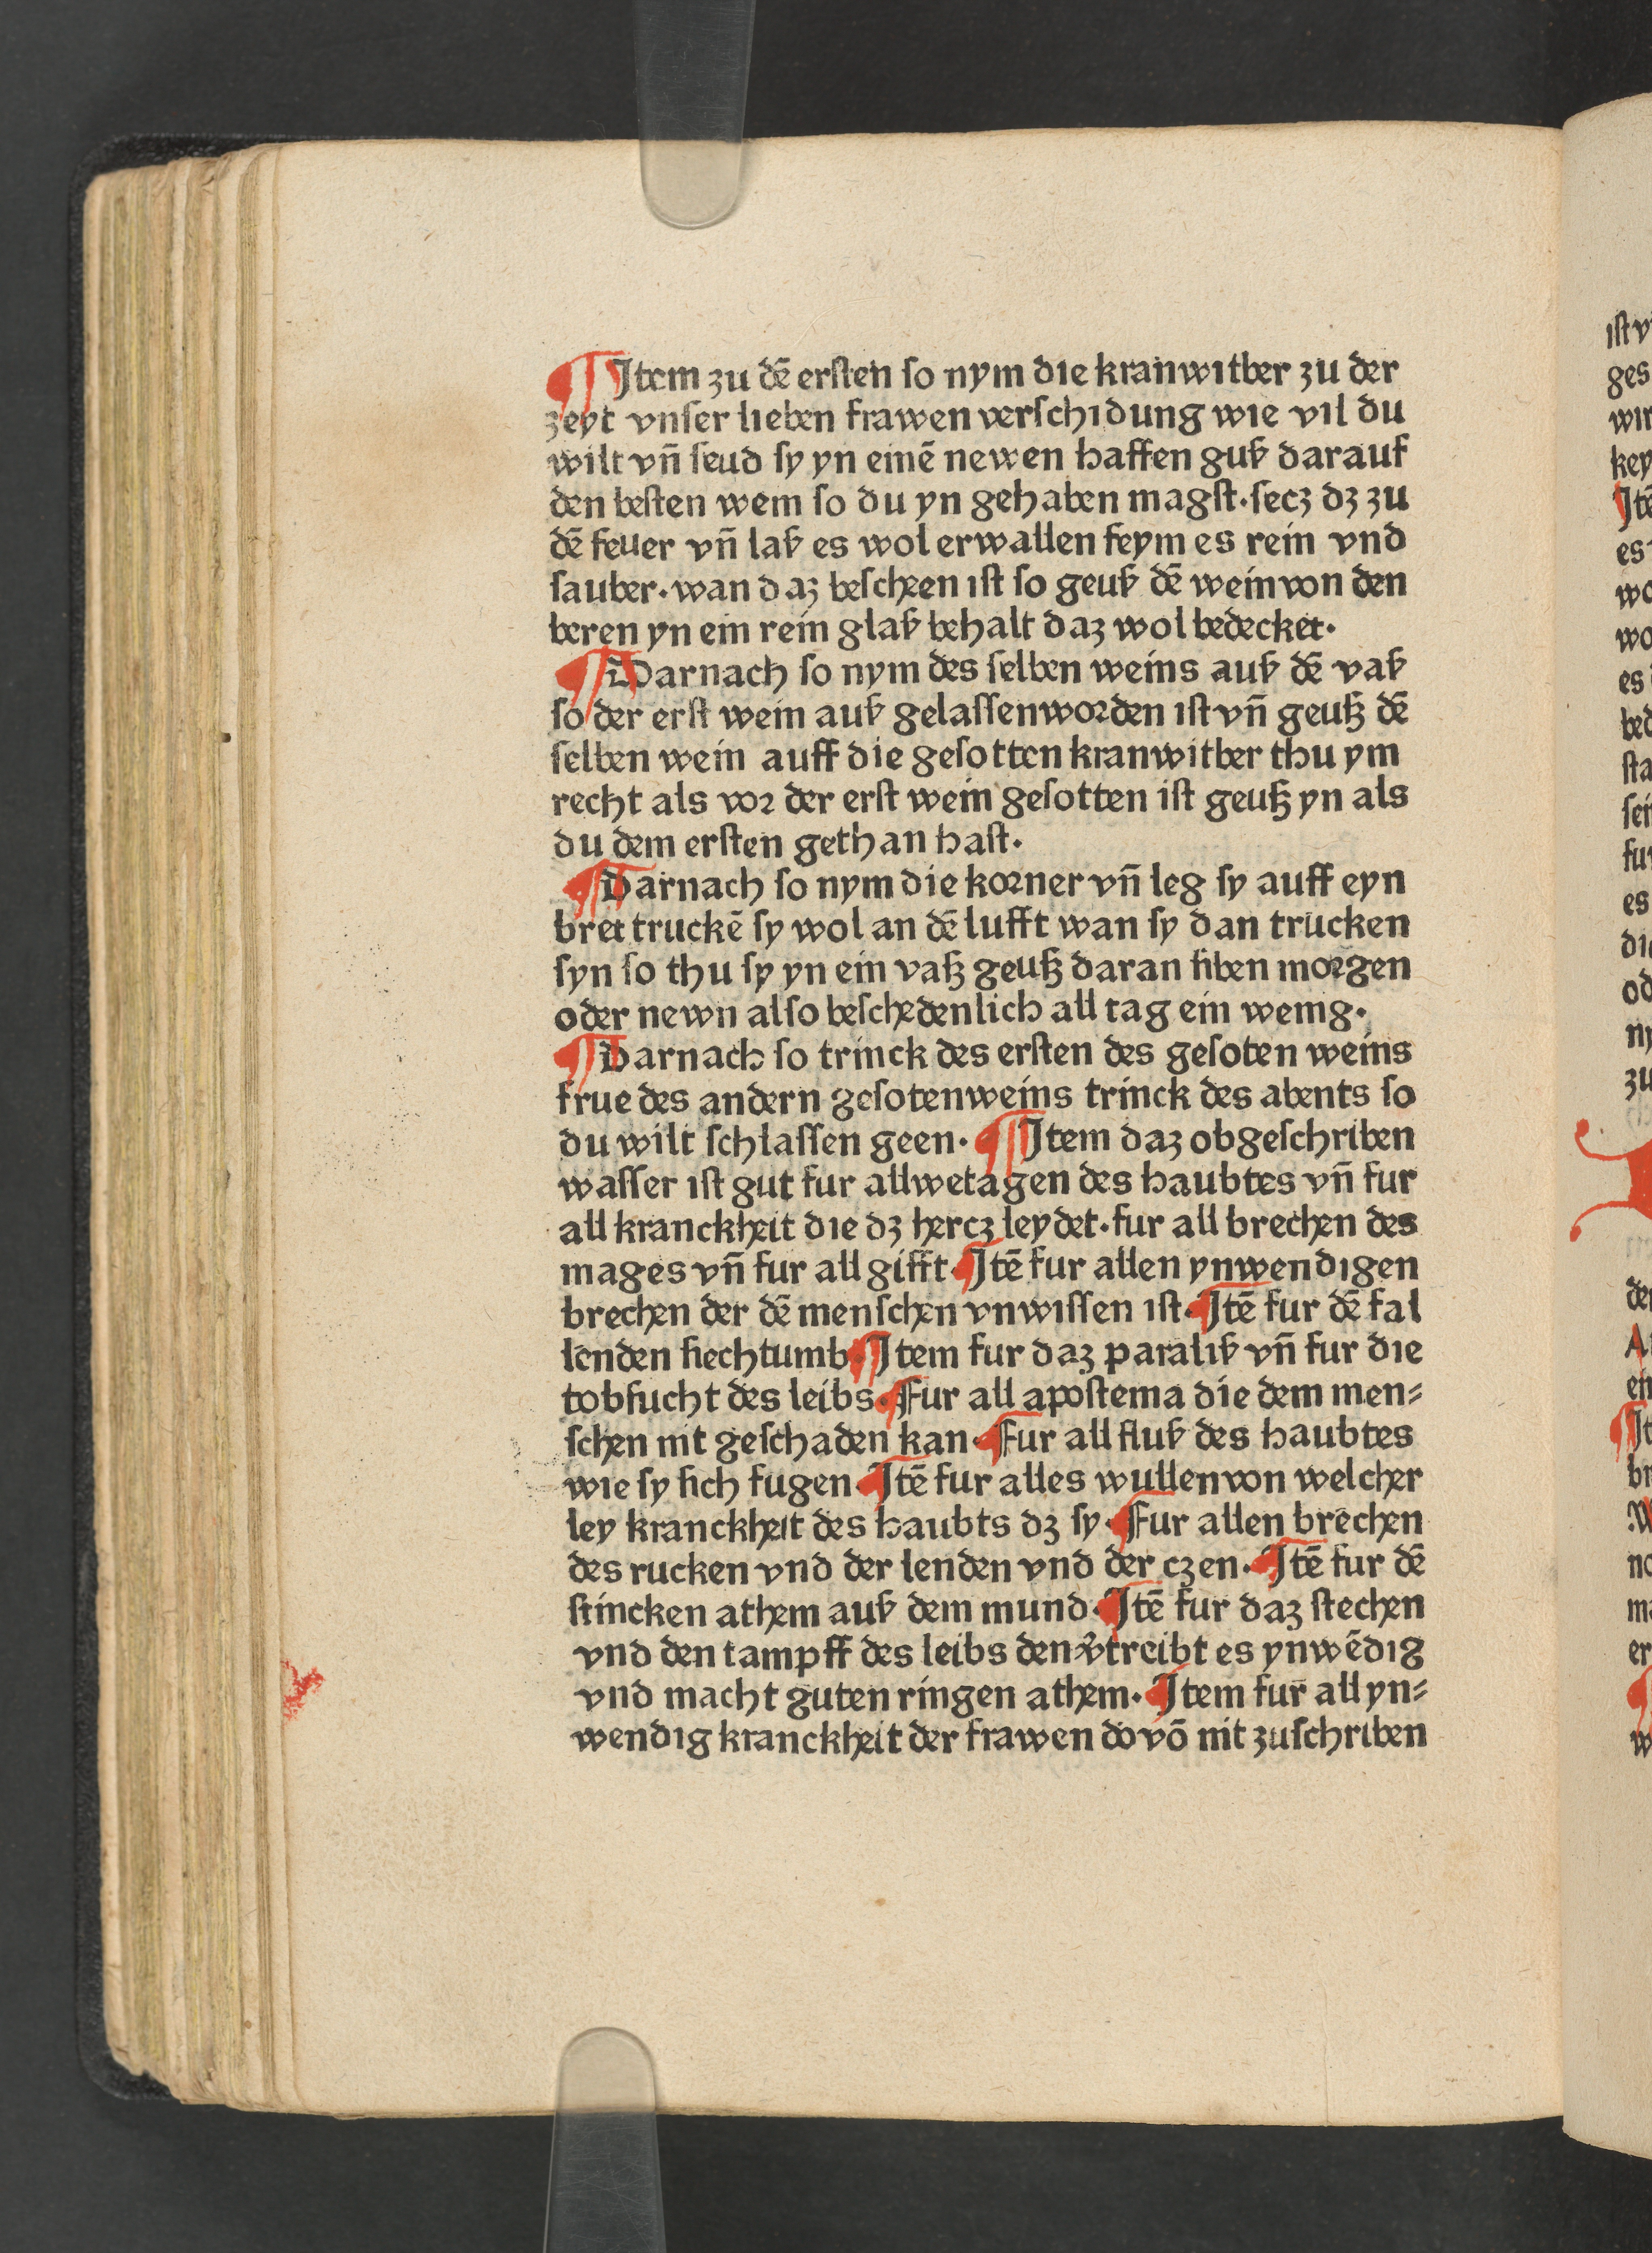 ¶ Item zu dē erſten ſo nym die kranwitber zu der
zeyt vnſer lieben frawen verſchidung wie vil du
wilt vn̄ ſeud ſy yn einē newen haffen guß darauf
den beſten wein ſo du yn gehaben magſt·ſecz dz zu
dē feuer vn̄ laß es wol erwallen feym es rein vnd
ſauber·wan daz beſcheen iſt ſo geuß dē wein von den
beren yn ein rein glaß behalt daz wol bedecket·
¶ Darnach ſo nym des ſelben weins auß dē vaß
ſo der erſt wein auß gelaſſen worden iſt vn̄ geuß dē
ſelben wein auff die geſotten kranwitber thu ym
recht als vor der erſt wein geſotten iſt geuß yn als
du dem erſten gethan haſt·
¶ Darnach ſo nym die korner vn̄ leg ſy auff eyn
bret truckē ſy wol an dē lufft wan ſy dan trucken
ſyn ſo thu ſy yn ein vaß geuß daran ſiben morgen
oder newn alſo beſchedenlich all tag ein wenig·
¶ Darnach ſo trinck des erſten des geſoten weins
frue des andern geſotenweins trinck des abents ſo
du wilt ſchlaffen geen· ¶ Item daz obgeſchriben
waſſer iſt gut fur allwetagen des haubtes vn̄ fur
all kranckheit die dz hercz leydet·fur all brechen des
mages vn̄ fur all gifft·Itē fur allen ynwendigen
brechen der dē menſchen vnwiſſen iſt·Itē fur dē fal
lenden ſiechtumb·Item fur daz paraliß vn̄ fur die
tobſucht des leibs·Fur all apoſtema die dem men⸗
ſchen nit geſchaden kan·Fur all fluß des haubtes
wie ſy ſich fugen·Itē fur alles wullen von welcher
ley kranckheit des haubts dz ſy·Fur allen brechen
des rucken vnd der lenden vnd der czen·Itē fur dē
ſtincken athem auß dem mund·Itē fur daz ſtechen
vnd den tampff des leibs den v̓treibt es ynwēdig
vnd macht guten ringen athem·Item fur all yn⸗
wendig kranckheit der frawen do vō nit zuſchriben